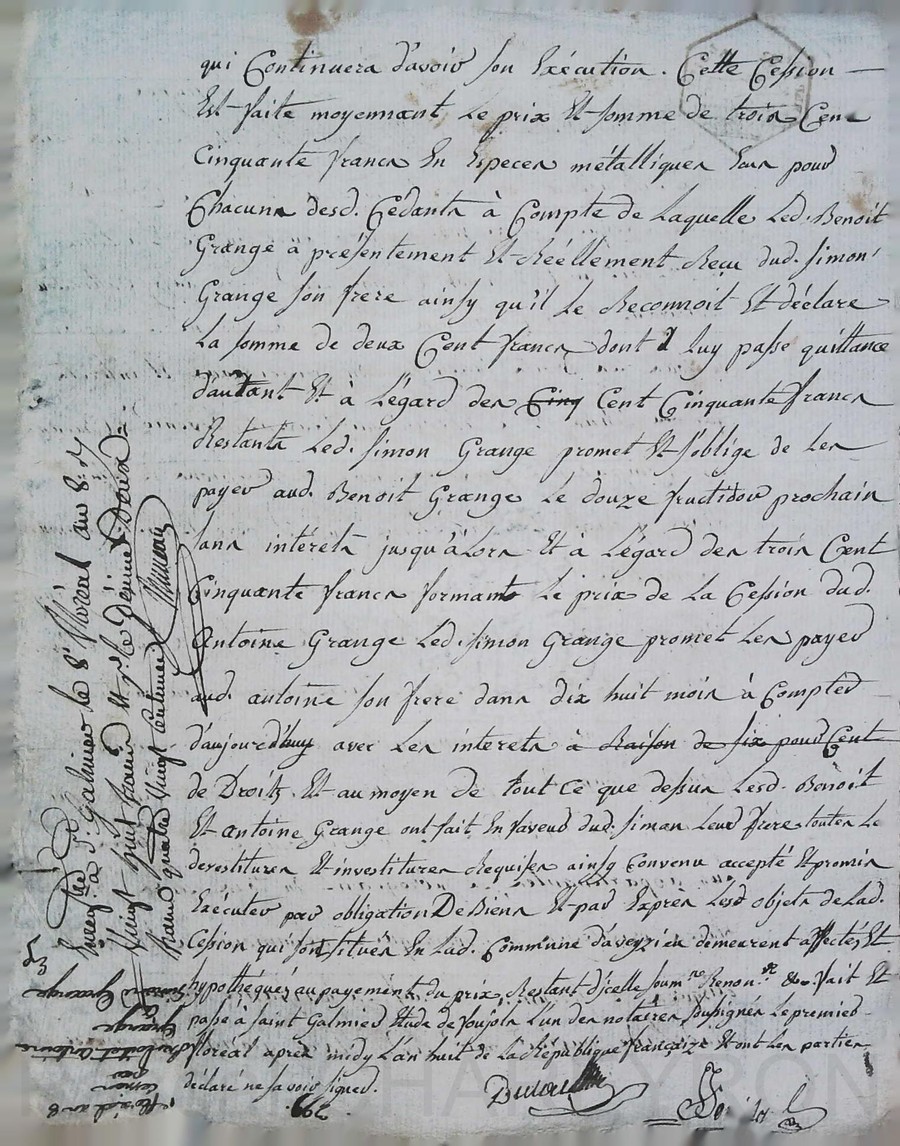 qui Continuera d'avoir son Exécution. Cette Cession
Est faite moyennant Le prix Et somme de trois Cent
Cinquante francs En Especes métalliques Eux pour
Chacuns desd. Cédants à Compte de Laquelle Led. Benoit
Grange a présentement Et Réellement Recu dud. Simon
Grange son frere ainsy qu'il Le Reconnoit Et déclare
La somme de deux Cent francs dont Luy passe quittance
d'autant Et à L'égard des Cinq Cent Cinquante francs
Restants Led. Simon Grange promet Et s'oblige de Les
payer aud. Benoit Grange Le douze fructidor prochain
sans intérets jusqu'àlors Et à L'égard des trois Cent
Cinquante francs formants Le prix de La Cession dud.
Antoine Grange Led. Simon Grange promet Les payer
aud. antoine son frere dans dix huit mois à Compter
d'aujourd'huy avec Les interets à Raison de six pour Cent
de Droits. Et au moyen de tout Ce que dessus Lesd. Benoit
Et antoine Grange ont fait En faveur dud. Simon Leur frere toutes Les
devestitures Et investitures Requises ainsy Convenu accepté Et promis
Exécuter par obligation De Biens Et par Exprès Lesd objets de Lad.
Cession qui sont situés En Lad. Commune d'aveyzieu demeurent affectés Et
hypothéqués au payement du prix Restant d'icelle soumon Renon. &. Fait Et
passé à Saint Galmier Etude de Voujols L'un des notaires soussignés Le premier
floréal après midy L'an huit de La République française Et ont Les parties
déclaré ne savoir signer.
à St. Galmier le 8 floréal an 8
vingt huit francs
quatre vingt centimes
Grange
Grange
Cession
floréal an 8